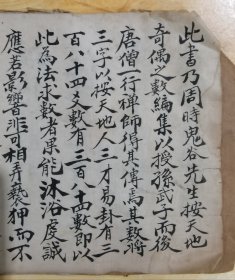 此書乃周時鬼谷先生按天地
奇偶之數編集以授孫武子而後
唐僧一行禅師得其傳焉其数將
三字以按天地人三才易卦有三
百八十四爻數有三百八十四數即以
此為法求數者果能沐浴虔誠
應若影響非可相弄褻狎而不